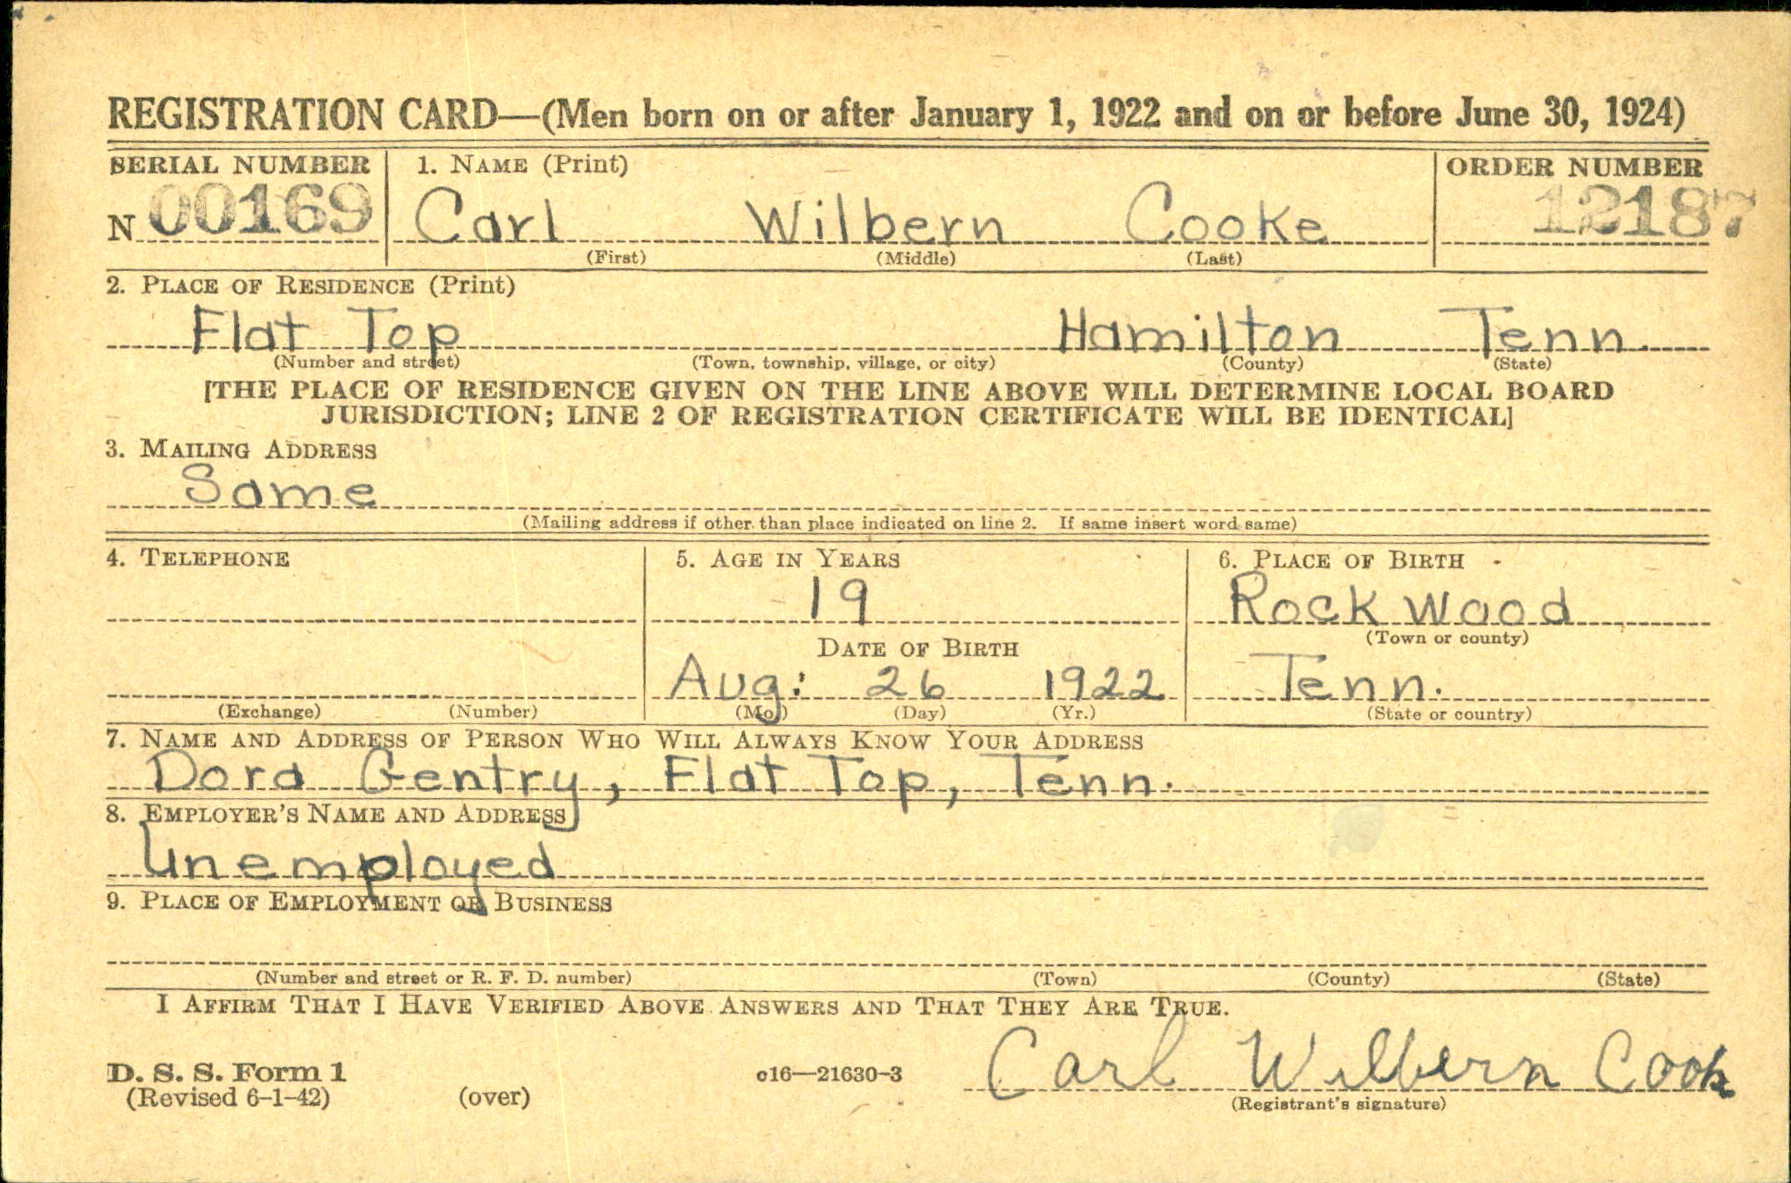 REGISTRATION CARD—(Men born on or after January 1, 1922 and on or before June 30, 1924)
SERIAL NUMBER 1. NAME (Print) ORDER NUMBER
N 00169 Carl Wilbern Cooke 12187
(First) (Middle) (Last)
2. PLACE OF RESIDENCE (Print)
Flat Top Hamilton Tenn.
(Number and street) (Town, township, village, or city) (County) (State)
[THE PLACE OF RESIDENCE GIVEN ON THE LINE ABOVE WILL DETERMINE LOCAL BOARD
JURISDICTION; LINE 2 OF REGISTRATION CERTIFICATE WILL BE IDENTICAL]
3. MAILING ADDRESS
Same
(Mailing address if other than place indicated on line 2. If same insert word same)
4. TELEPHONE 5. AGE IN YEARS 6. PLACE OF BIRTH
19 Rock wood
DATE OF BIRTH (Town or county)
Aug: 26 1922 Tenn.
(Exchange) (Number) (Mo.) (Day) (Yr.) (State or country)
7. NAME AND ADDRESS OF PERSON WHO WILL ALWAYS KNOW YOUR ADDRESS
Dora Gentry, Flat Top, Tenn.
8. EMPLOYER'S NAME AND ADDRESS
Unemployed
9. PLACE OF EMPLOYMENT OR BUSINESS
(Number and street or R. F. D. number) (Town) (County) (State)
I AFFIRM THAT I HAVE VERIFIED ABOVE ANSWERS AND THAT THEY ARE TRUE.
Carl Wilbern Cook
D. S. S. Form 1 c16—21630-3
(Revised 6-1-42) (over) (Registrant's signature)